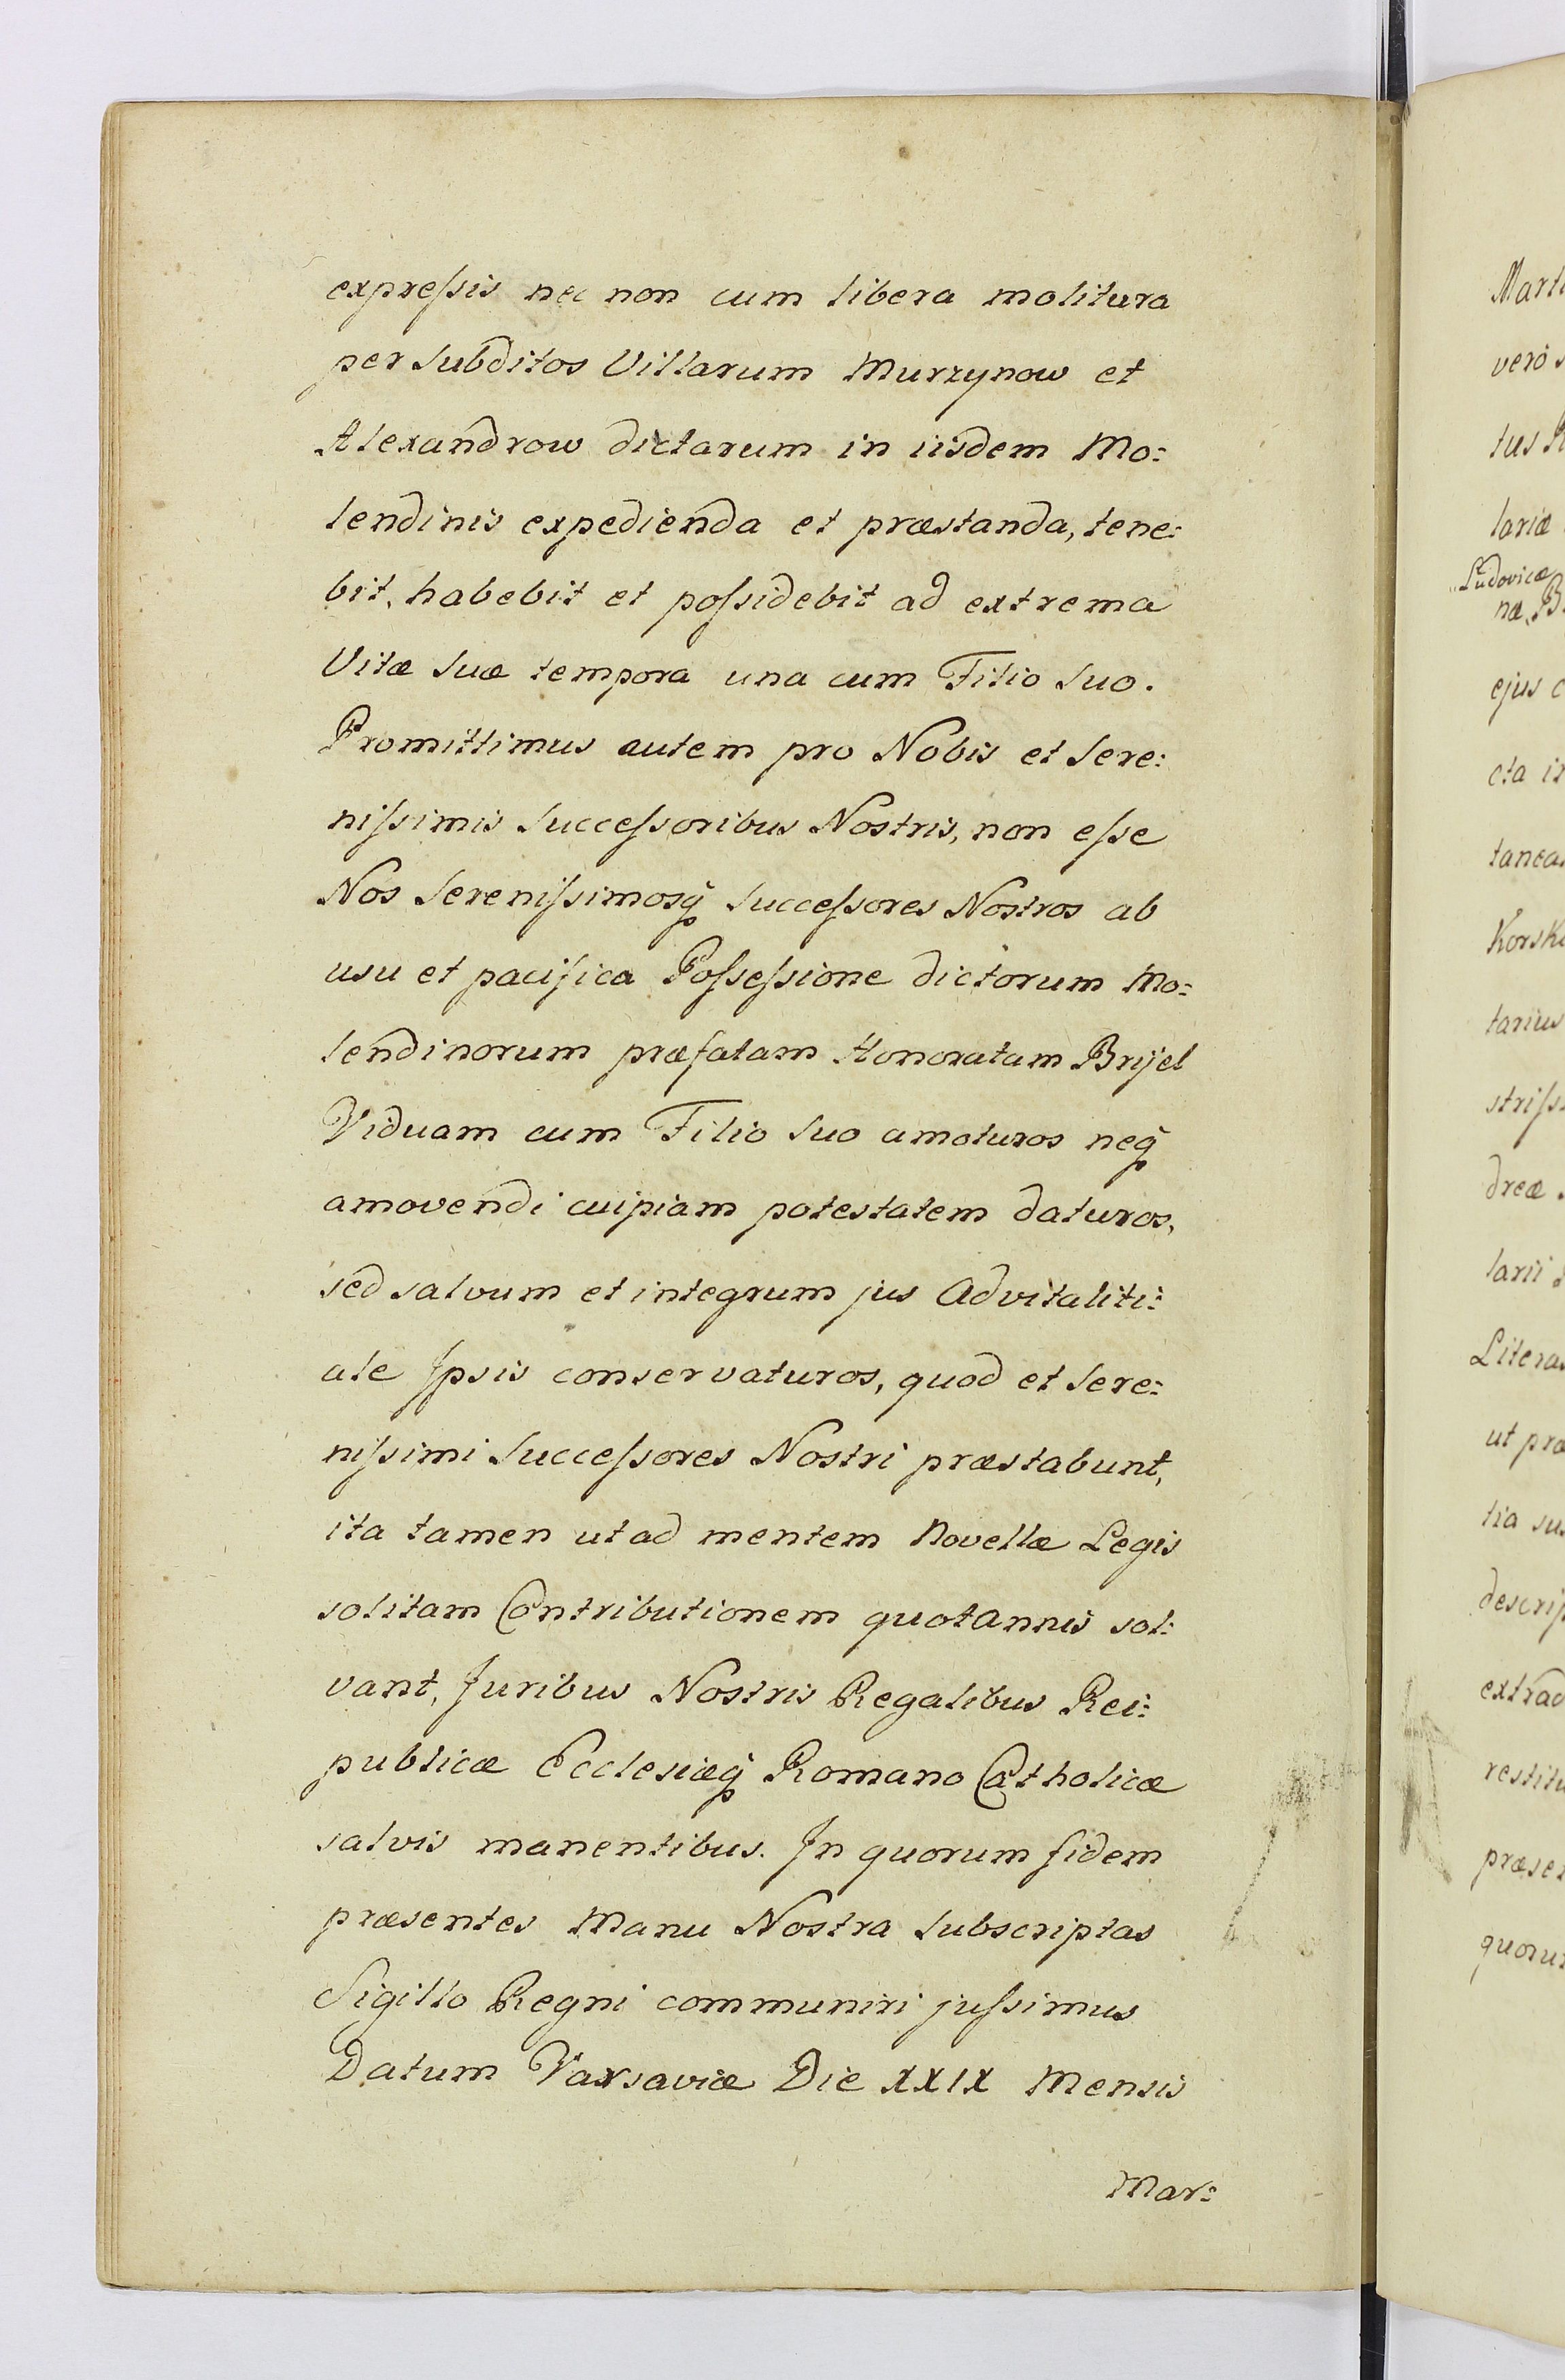 expreſsis nec non cum libera molitura
per Subditos Villarum Murzynow et
Alexandrow dictarum in iisdem Mo:
lendinis expedienda et præstanda, tene:
bit, habebit et poſsidebit ad extrema
Vitæ Suæ tempora una cum Filio Suo.
Promittimus autem pro Nobis et Sere:
niſsimis Succeſsoribus Nostris, non eſse
Nos Sereniſsimosq̃ Succeſsores Nostros ab
usu et pacifica Poſseſsione dictorum Mo:
lendinorum præfatam Honoratam Brijel
Viduam cum Filio Suo amoturos neq̃
amovendi cuipiam potestatem daturos,
sed salvum et integrum jus Advitaliti:
ale Ipsis conservaturos, quod et Sere:
niſsimi Succeſsores Nostri præstabunt,
ita tamen ut ad mentem Novellæ Legis
solitam Contributionem quotannis sol:
vant, Juribus Nostris Regalibus Rei:
publicæ Ecclesiæq̃ Romano Catholicæ
salvis manentibus. In quorum fidem
præsentes Manu Nostra Subscriptas
Sigillo Regni communiri juſsimus
Datum Varsaviæ Die XXIX Mensis
Mar:
vero
lariæ
Ludovicæ
næ, B
ejus c
cta in
tanea
Korsk
tarius
striſs
dreæ
larii
Litera
ut præ
tia su
descrip
extrad
restitu
præse
quoru